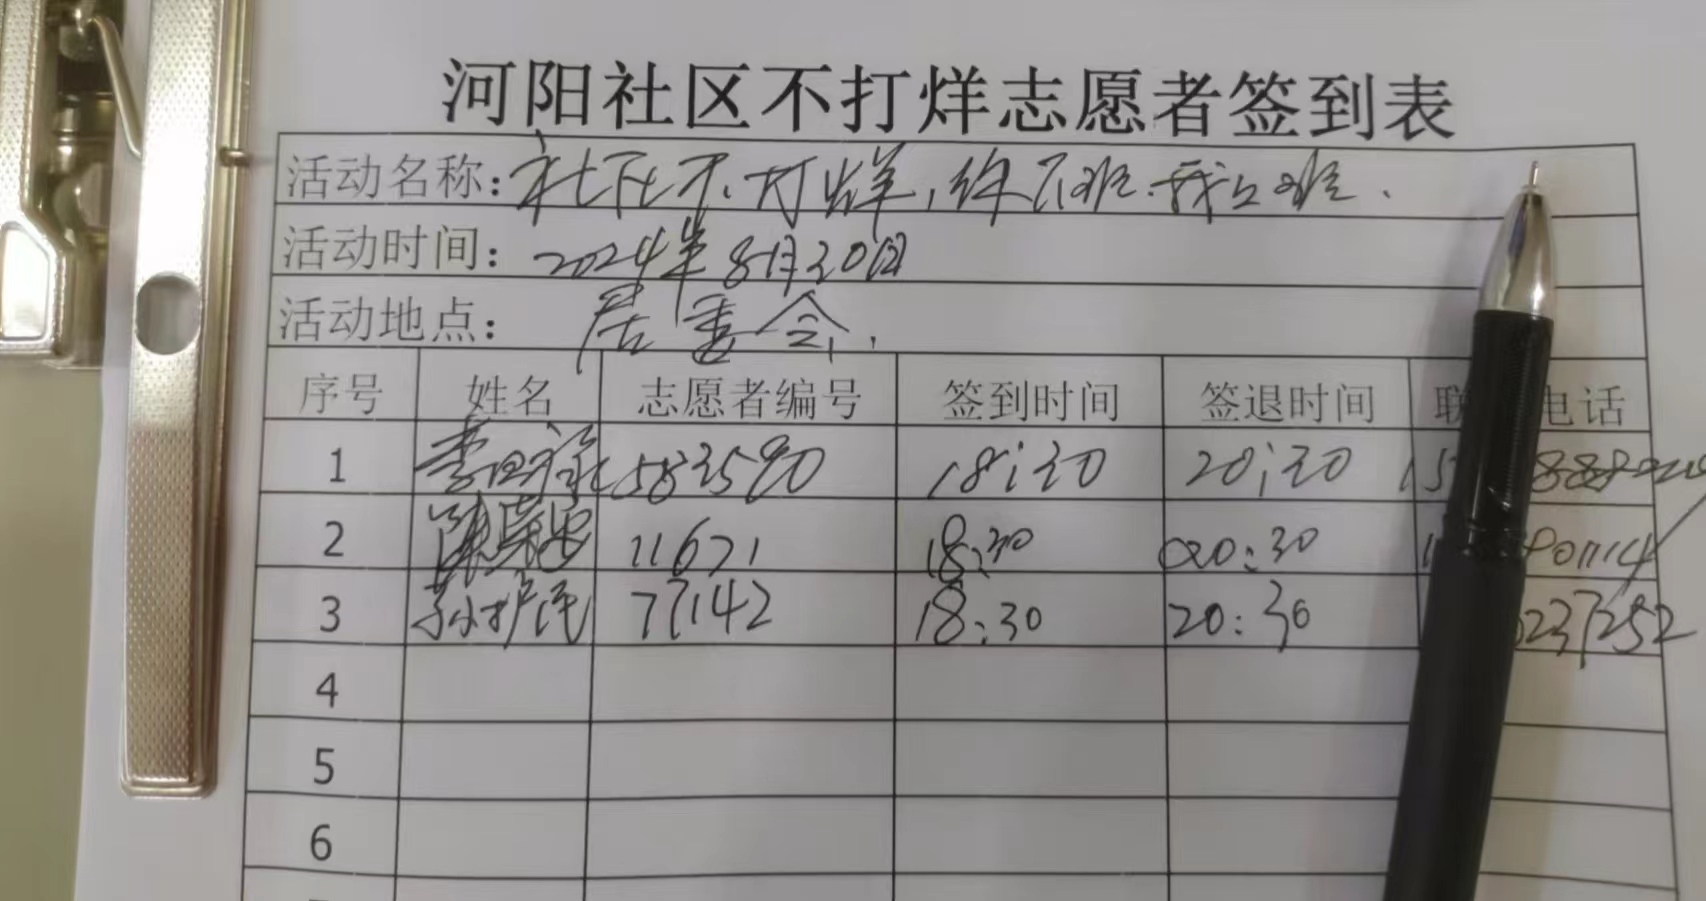 河阳社区不打烊志愿者签到表
活动名称：社区不打烊，你下班我上班.
活动时间：2024年8月30日
活动地点：居委会.
序号 姓名 志愿者编号 签到时间 签退时间 联 电话
1 583590 18:30 20:30
2 11671 18:30 20:30
3 孙护民 77142 18:30 20:30 237252
4
5
6